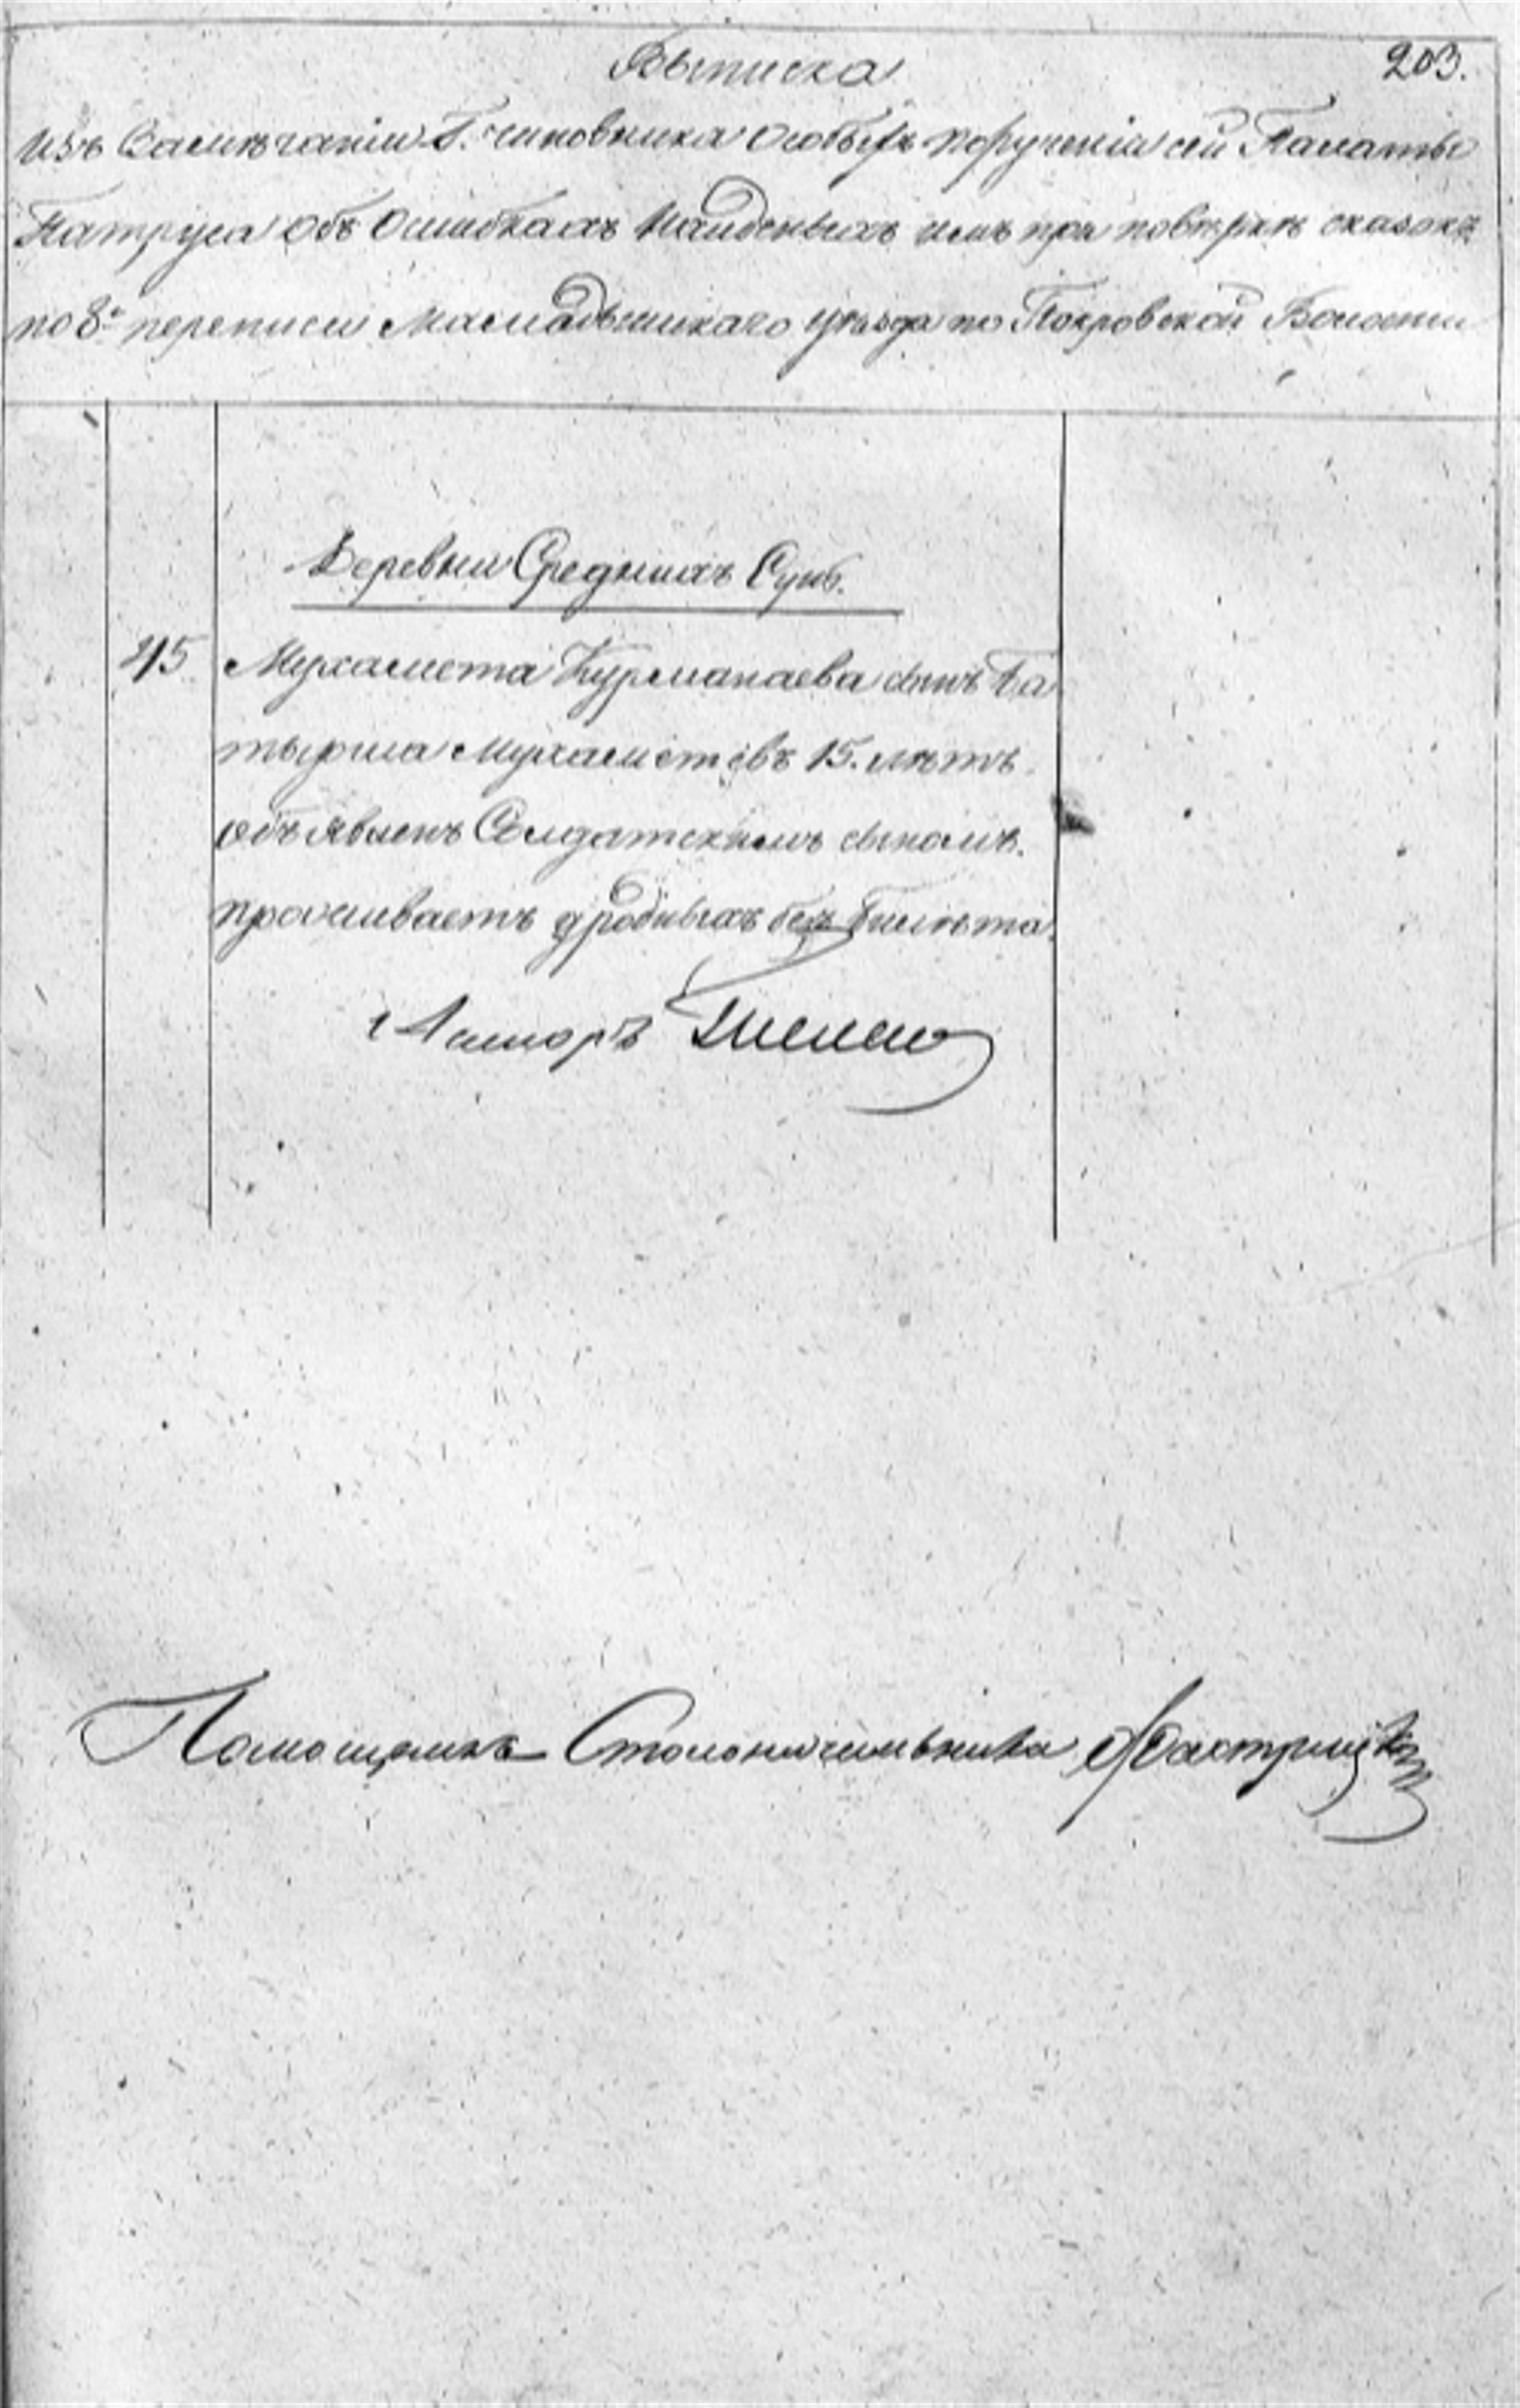 203.
Выписка
изъ Замѣчаніи Г. чиновника Особыхъ порученіи сей Палаты
Патруса объ Ошибкахъ Найденыхъ имъ при повѣркѣ сказокъ
по 8й переписи Мамадышскаго уѣзда по Покровской Волости
Деревни Среднихъ Сунь.
45 Мухамета Курманаева сынъ Ба
тырша Мухаметовъ 15. лѣтъ
объявленъ Солдатскимъ сыномъ.
проживаетъ у родныхъ безъ билѣта.
Маиоръ
Помощникъ Столоначальника